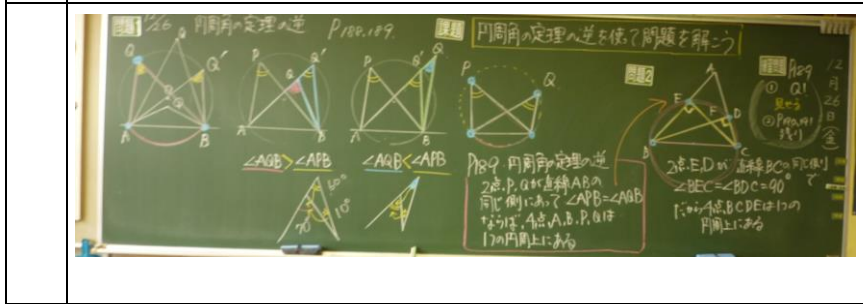 問題1 12/26 円周角の定理の逆 P188,189.
課題 円周角の定理の逆を使って問題を解こう
Q
Q Q'
A B
P Q'
Q
A B
∠AQB>∠APB
60°
70 10°
P Q' Q
A B
∠AQB<∠APB
P Q
P189 円周角の定理の逆
2点P,Qが直線ABの
同じ側にあって∠APB=∠AQB
ならば,4点A,B,P,Qは
1つの円周上にある
問題2
A
E F D
B C
2点E,Dが直線BCの同じ側で
∠BEC=∠BDC=90°
だから4点BCDEは1つの
円周上にある
P189
① Q1
②P190,191
残り
12月26日(金)